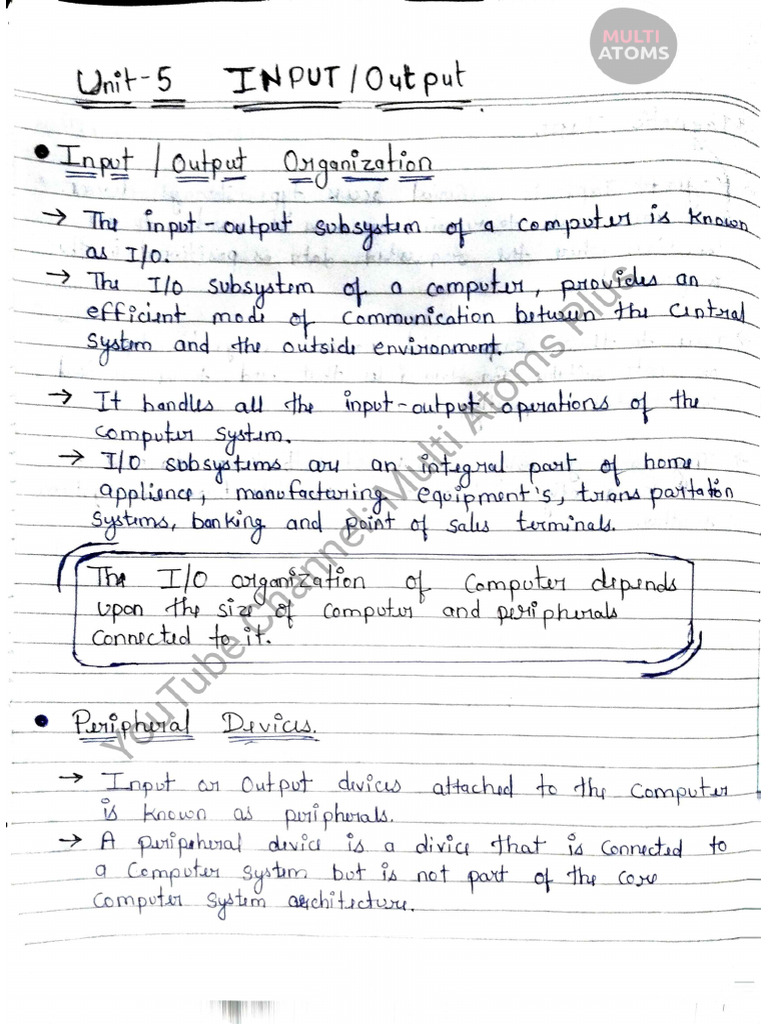 MULTI
ATOMS
Unit-5 INPUT/Output
• Input / Output Organization
→ The input-output subsystem of a computer is known
as I/O.
→ The I/O subsystem of a computer, provides an
efficient mode of communication between the central
system and the outside environment.
→ It handles all the input-output operations of the
computer system.
→ I/O subsystems are an integral part of home
applience, manufacturing equipment's, trans partation
systems, banking and point of sales terminals.
The I/O organization of computer depends
upon the size of computer and peripherals
connected to it.
• Peripheral Devices.
→ Input or Output devices attached to the computer
is known as peripherals.
→ A peripheral device is a divice that is connected to
a computer system but is not part of the core
computer system architecture.
YouTube Channel: Multi Atoms Plus